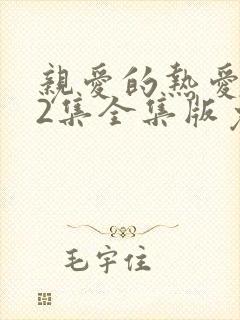 親愛的熱愛
2集全集版
毛宇住